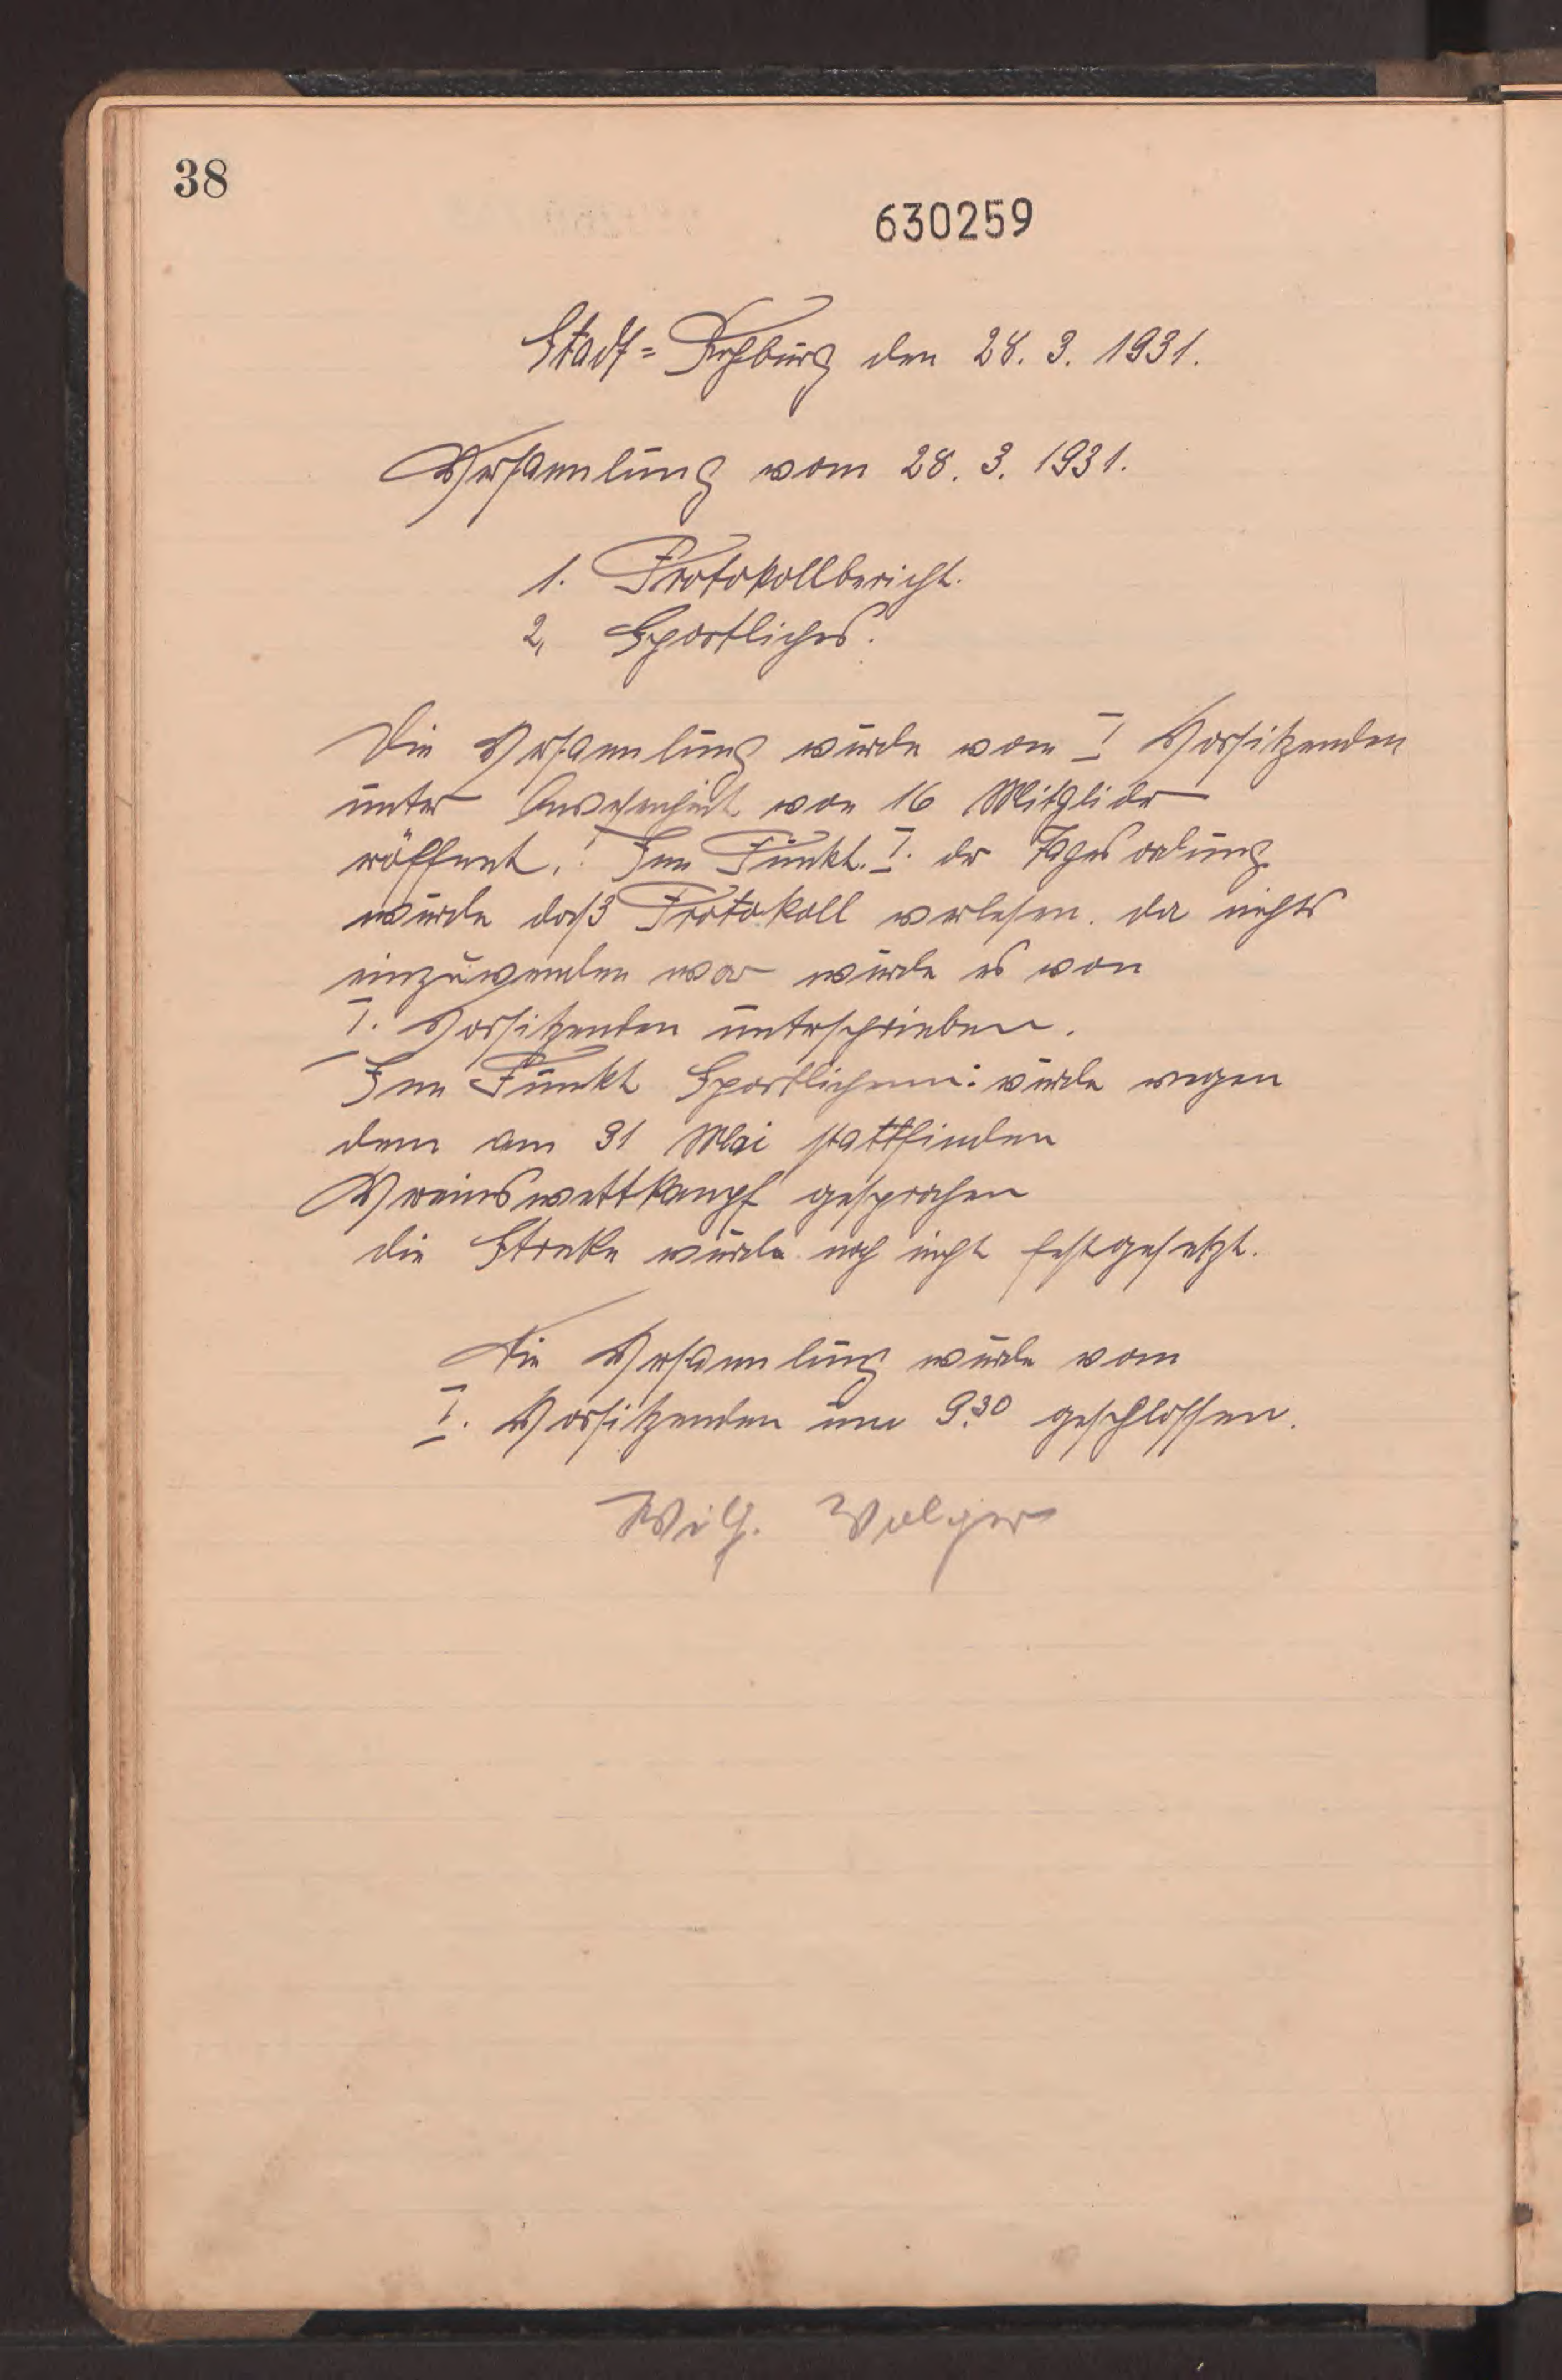 38
630259
Stadt=Rehburg den 28. 3. 1931.
Versammlung vom 28. 3. 1931.
1. Protokollbericht.
2, Sportliches.
Die Versammlung wurde vom I Vorsitzenden
unter Anwesenheit von 16 Mitglieder
eröffnet. Im Punkt. I. der Tagesordung
wurde daß Protokoll verlesen. da nichts
einzuwenden war wurde es von
I. Vorsitzenden unterschrieben.
Im Punkt Sportlichem: wurde wegen
dem am 31 Mai stattfinden
Vereinswettkampf gesprochen
die Streke wurde noch nicht festgesetzt.
Die Versammlung wurde vom
I. Vorsitzenden um 9.30 geschlossen.
Wilh. Volger